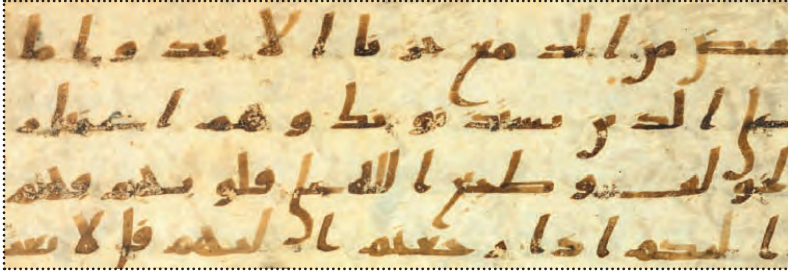 تفيض من الدمع حزنا الا يجد وا ما
على الذين يستذنونك وهم اغنيا
لخولف وطبع ا لله على قلوبهم فهم
ا ليكم اذا ر جعتم ا ليهم قل لا تعتذ